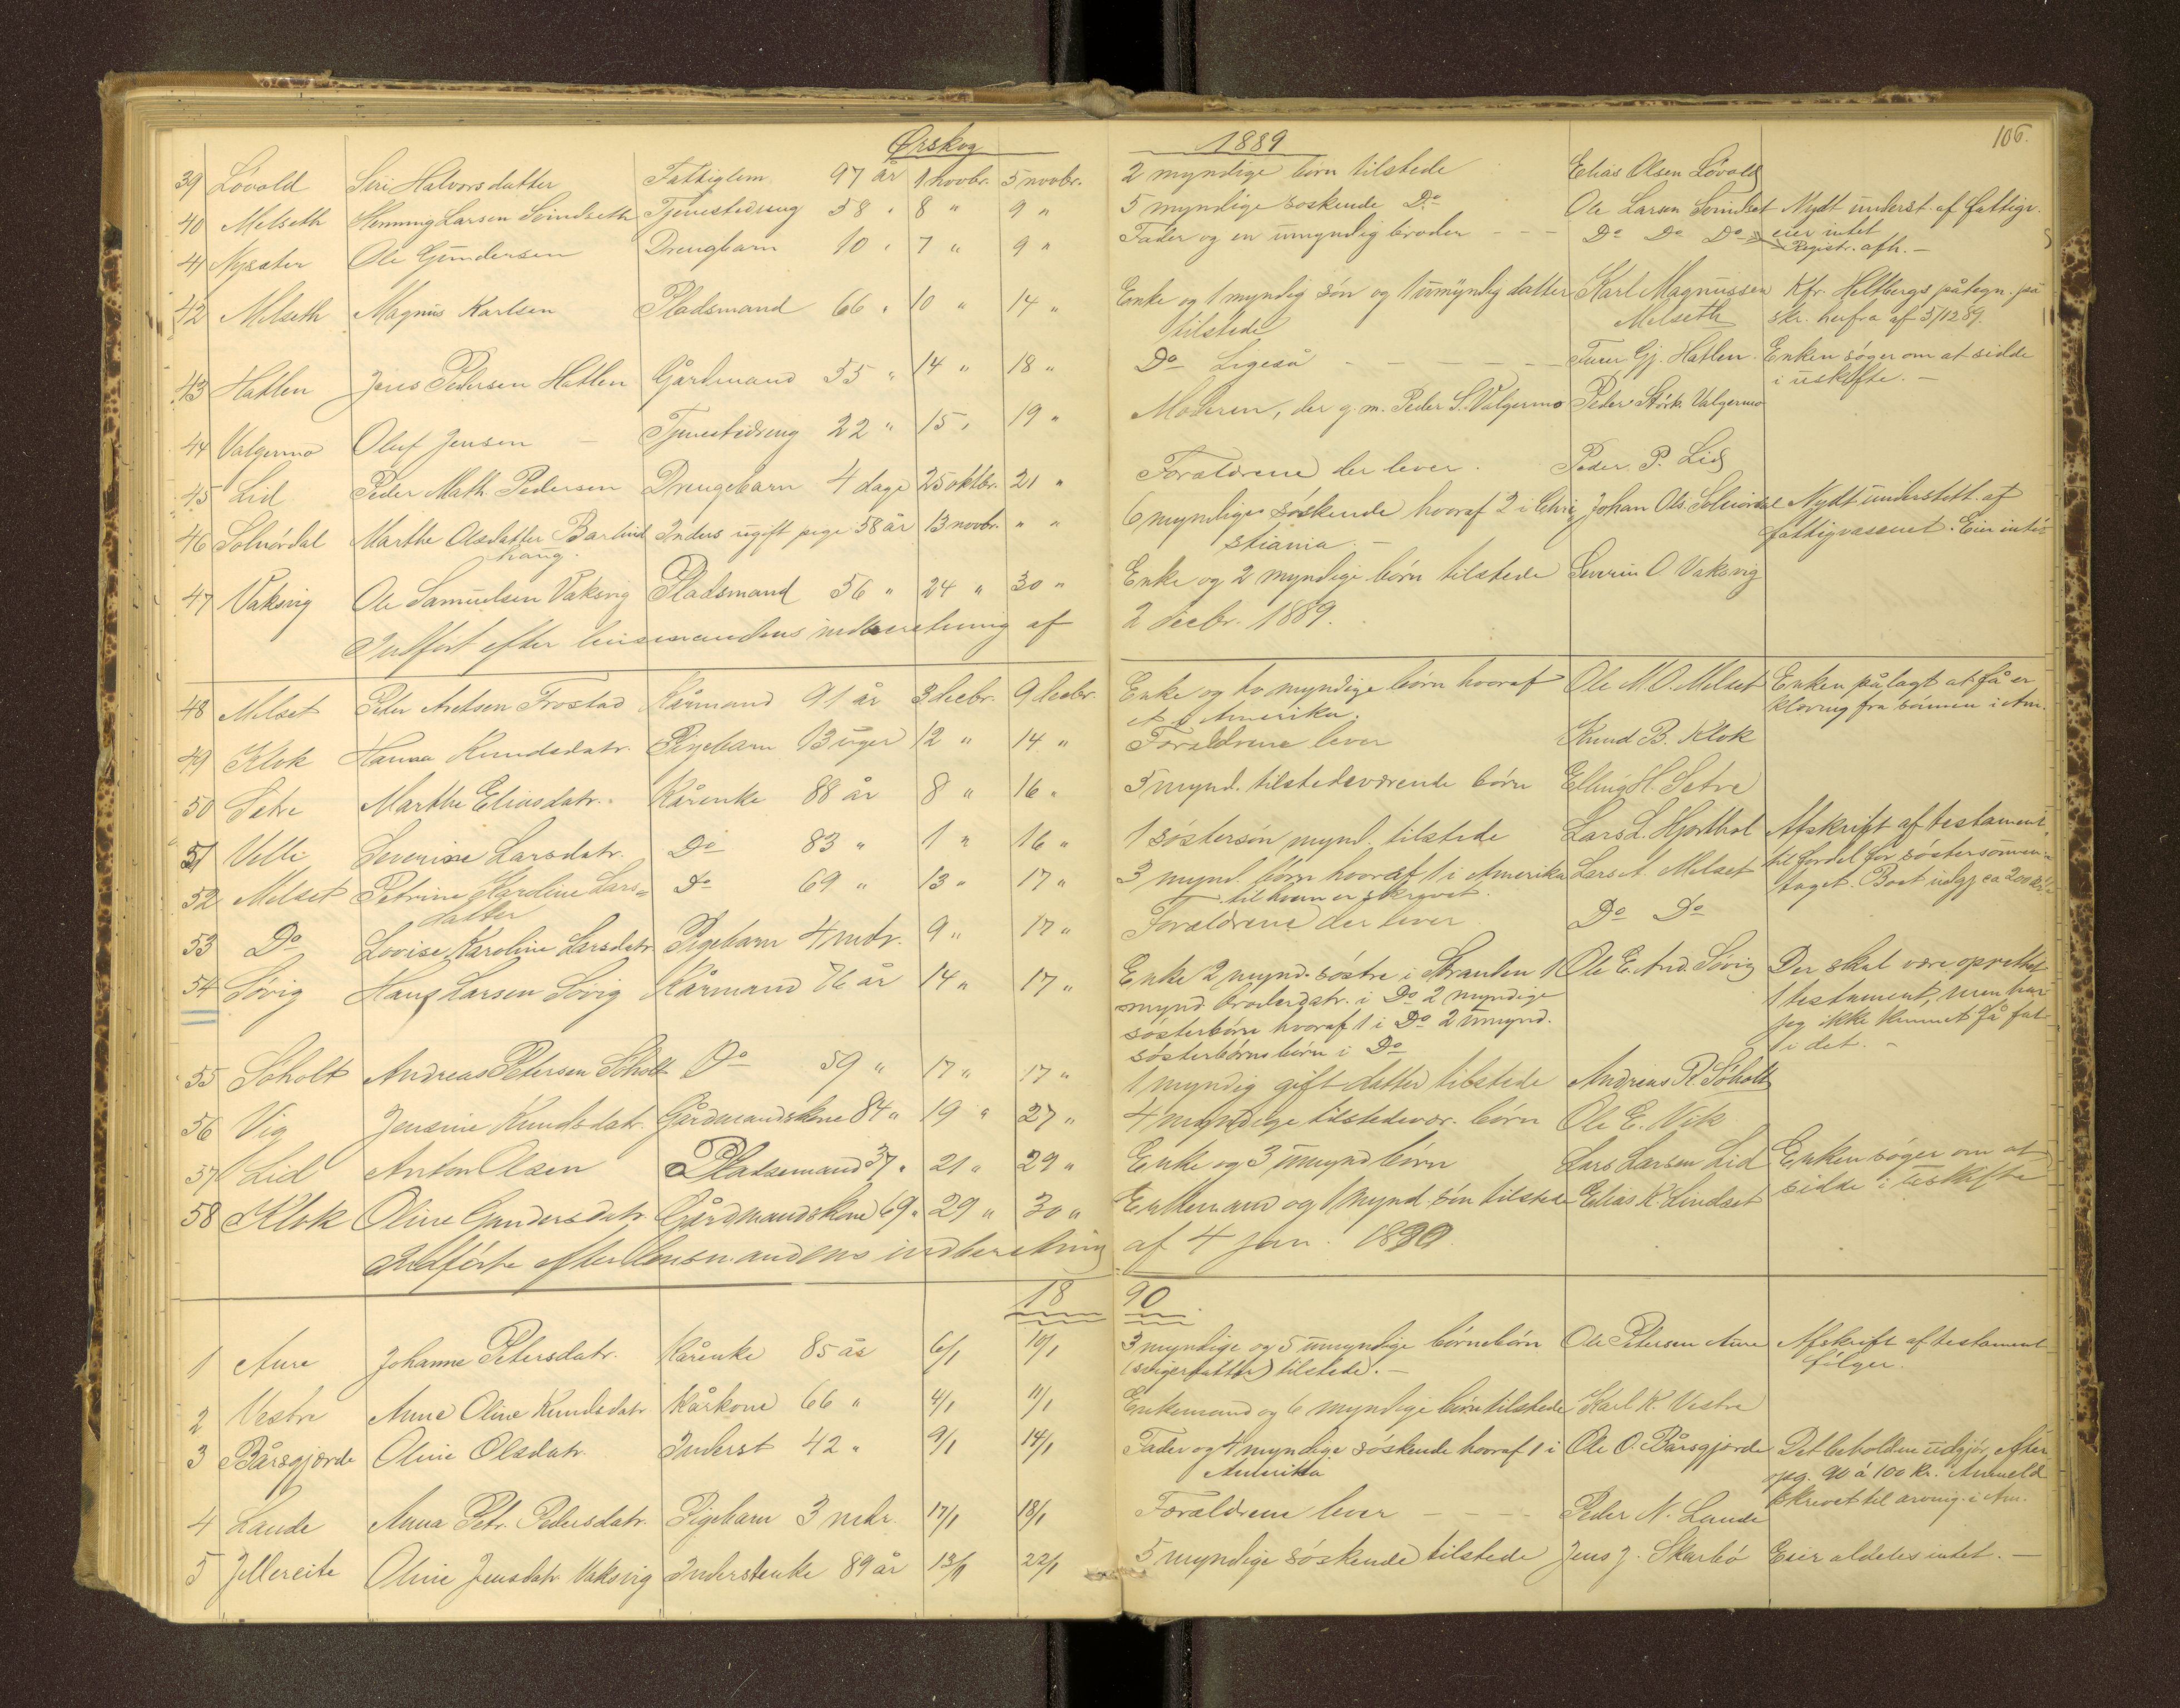 Ørskog 1889 106.
39 Lövold Siri Halvorsdatter Fattiglem 97 år 1 novbr. 5 novbr. 2 myndige börn tilstede Elias Olsen Lövold
40 Melseth Henning Larsen Svindseth Tjenestedreng 58 " 8 " 9 " 5 myndige söskende Do Ole Larsen Svindset Nydt underst. af fattigv.
eier intet
41 Nysæter Ole Gundersen Drengbarn 10 " 7 " 9 " Fader og en umyndig broder - - - Do Do Do Registr. afh. -
42 Melseth Magnus Karlsen Pladsmand 66 " 10 " 14 " Enke og 1 myndig sön og 1 umyndig datter Karl Magnussen Kfr. Heltbergs påtegn. på
tilstede Melseth skr. herfra af 5/12 89.
43 Hatlen Jens Pedersen Hatlen Gårdmand 55 " 14 " 18 " Do Ligeså - - - Gj. Hatlen. Enken söger om at sidde
i uskifte. -
44 Valgermo Oluf Jensen - Tjenestedreng 22 " 15 " 19 " Moderen, der g. m. Peder S. Valgermo Peder Störk. Valgermo
45 Lid Peder Math. Pedersen Drengebarn 4 dage 25 oktbr. 21 " Forældrene der lever. Peder P. Lid
46 Solnördal Marthe Olsdatter Barlind Inders. ugift pige 58 år 13 novbr. " " 6 myndige söskende hvoraf 2 i Chri Johan Ols. Solnördal Nydt understött. af
haug. stiania. - fattigvæsenet. Eier intet
47 Vaksvig Ole Samuelsen Vaksvig Pladsmand 56 " 24 " 30 " Enke og 2 myndige börn tilstede Severin O. Vaksvig
Indfört efter lensmandens indberetning af 2 decbr. 1889.
48 Melset Peder Aretsen Frostad Kårmand 91 år 3 decbr. 9 decbr. Enke og to myndige börn hvoraf Ole M. O. Melset Enken pålagt at få er
et i Amerika. klæring fra sönnen i Am.
49 Klok Hansa Knudsdatr. Pigebarn 13 uger 12 " 14 " Forældrene lever Knud B. Klok
50 Setre Marthe Eliasdatr. Kårenke 88 år 8 " 16 " 5 mynd. tilstedeværende börn Elling H. Setre
51 Velle Severine Larsdatr. Do 83 " 1 " 16 " 1 söstersön mynd. tilstede Lars L. Hjorthol Afskrift af testament.
52 Melset Petrine Karoline Lars= Do 69 " 13 " 17 " 3 mynd. börn hvoraf 1 i Amerika Lars A. Melset til fordel for söstersönnen
datter til hvem er skrevet. taget. Boet udgj ca 200 kr.
53 Do Lovise Karoline Larsdatr. Pigebarn 4 mdr. 9 " 17 " Forældrene der lever Do Do
54 Sövig Hans Larsen Sövig Kårmand 76 år 14 " 17 " Enke 2 mynd. söstre i Stranden 1 Ole E. And. Sövig Der skal være oprettet
mynd broderdatr. i Do 2 myndige 1 testament, men har
sösterbörn hvoraf 1 i Do 2 umynd. jeg ikke kunnet få fat
sösterbörns börn i Do i det. -
55 Söholt Andreas Petersen Söholt Do 59 " 17 " 17 " 1 myndig gift datter tilstede Andreas R. Söholt
56 Vig Jensine Knudsdatr. Gårdmandskone 84 " 19 " 27 " 4 myndige tilstedevær. börn Ole E. Vik
57 Lid Anton Olsen Pladsemand 37 " 21 " 29 " Enke og 3 umynd börn Lars Larsen Lid Enken söger om at
sidde i uskifte
58 Klok Oline Gundersdatr. Gårdmandskone 69 " 29 " 30 " Enkemand og 1 mynd. sön tilstede Elias K Lindset
Indförte efter lensmandens indberetning af 4 jan. 1890
1890
1 Aure Johanne Petersdatr. Kårenke 85 år 6/1 10/1 3 myndige og 5 umyndige börnebörn Ole Petersen Aure Afskrift af testament
tilstede. - fölger.
2 Vestre Anne Oline Knudsdatr. Kårkone 66 " 4/1 11/1 Enkemand og 6 myndige börn tilstede Karl K. Vestre
3 Bårsgjærde Oline Olsdatr. Inderst 42 " 9/1 14/1 Fader og 4 myndige söskende hvoraf 1 i Ole O. Bårsgjærde Det beholdne udgjör efter
Amerika opg. 90 á 100 kr. Anmeld
skrevet til arving. i Am.
4 Lande Anna Petr. Pedersdatr. Pigebarn 3 mdr. 17/1 18/1 Forældrene lever - - - - Peder N. Lande
5 Jellereite Oline Jensdatr. Vaksvig Inderstenke 89 år 13/1 22/1 5 myndige söskende tilstede Jens J. Skarbö Eier aldeles intet. -